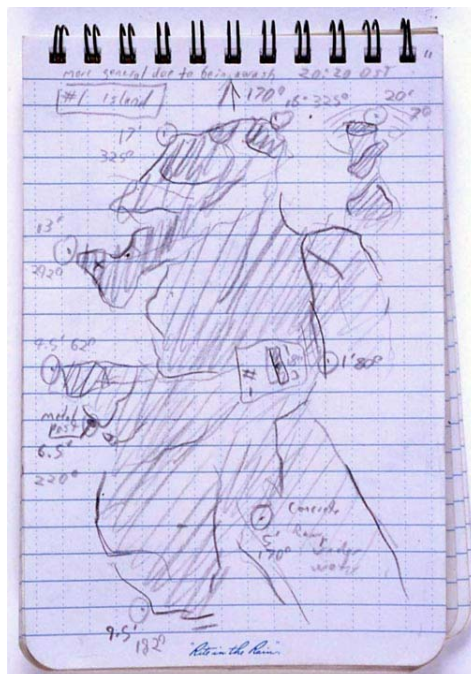 more general due to being awash 20:20 DST
#1. island
170°
16' 325°
20'
20
17'
325°
13'
292°
9.5' 62°
#1
1' 80°
metal
post
6.5'
220°
Concrete
5'
170°
under
water
9.5'
182°
"Rite in the Rain"